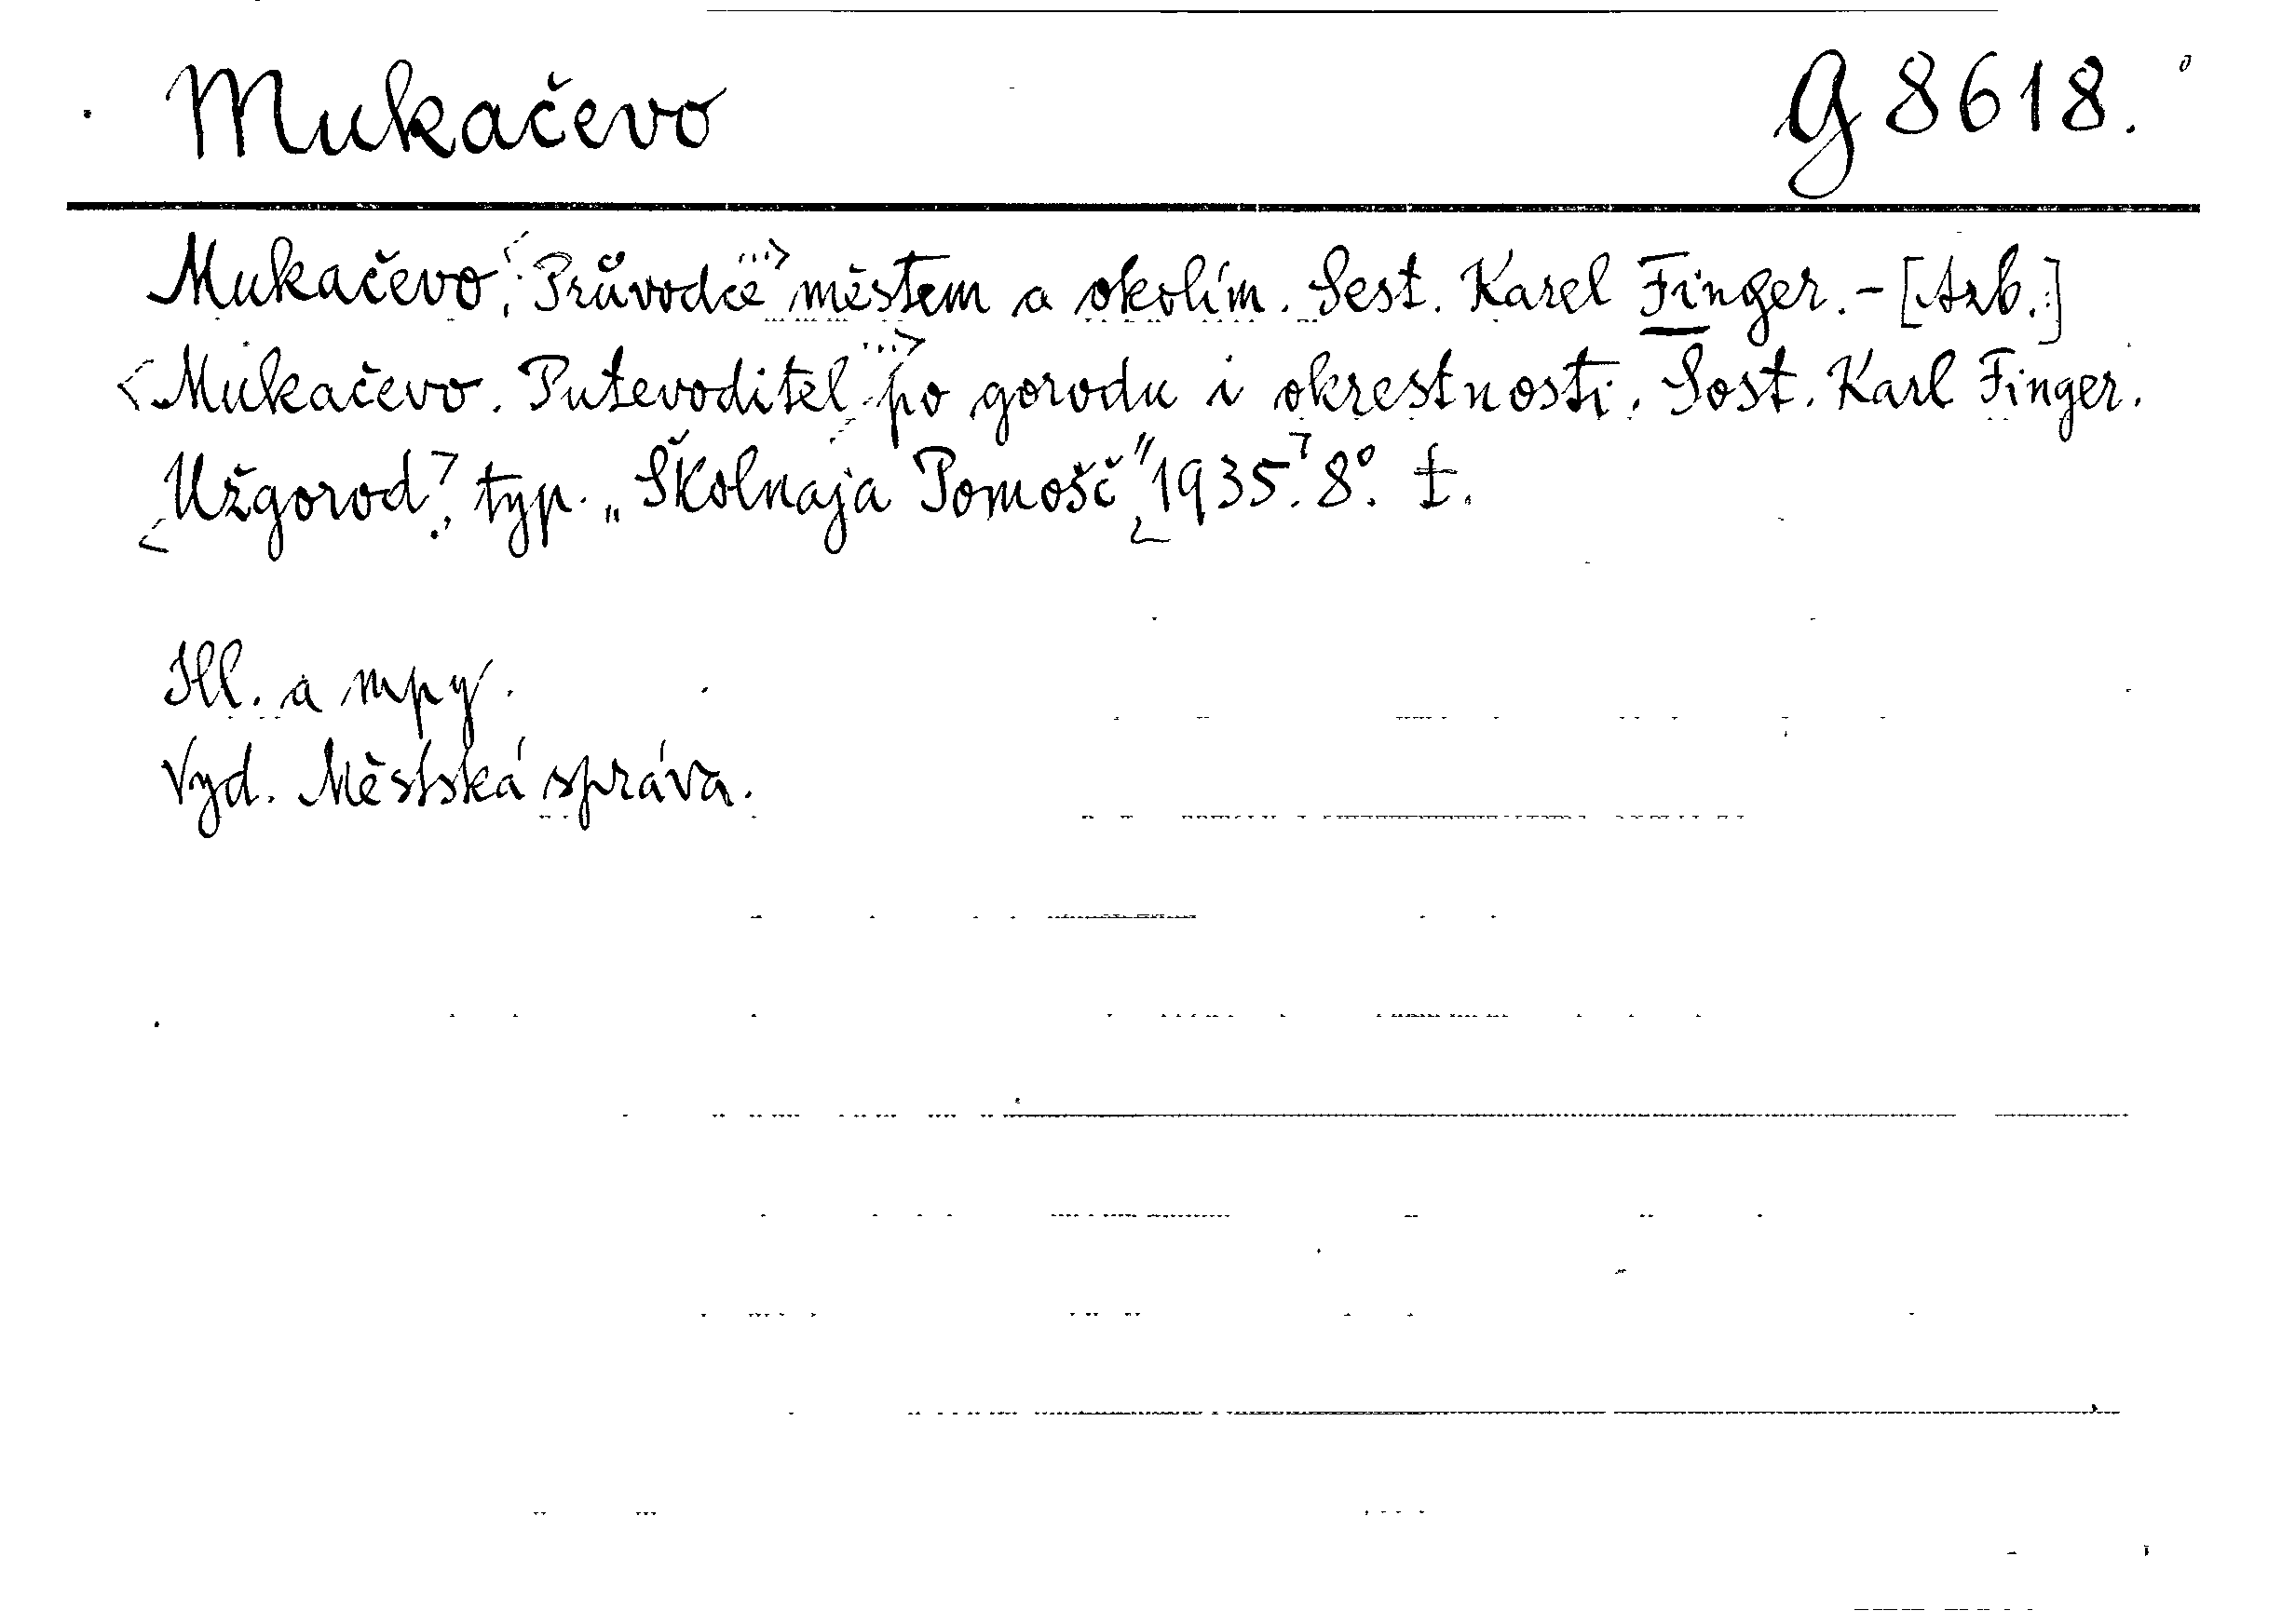 Mukačevo G 8618.
Mukačevo. Průvodce městem a okolím. Sest. Karel Finger. - [Azb.:]
<Mukačevo. Putevoditel po gorodu i okrestnosti. Sost. Karl Finger.
Užgorod, typ. „Školnaja Pomošč" 1935. 8°. ‡.
Ill. a mpy.
Vyd. Městská správa.